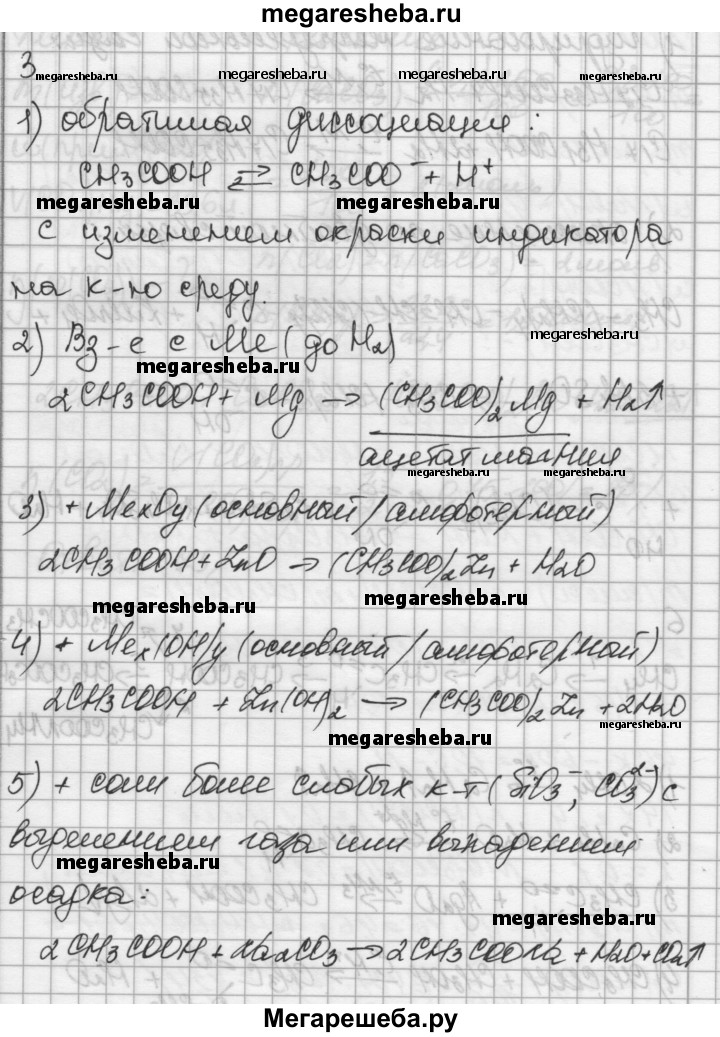 megaresheba.ru
3
megaresheba.ru megaresheba.ru megaresheba.ru megaresheba.ru
1) обратимая диссоциация:
CH3COOH ⇄ CH3COO⁻ + H⁺
megaresheba.ru megaresheba.ru
с изменением окраски индикатора
на к-ю среду.
megaresheba.ru
2) Вз-е с Me (до H2)
megaresheba.ru
2CH3COOH + Mg → (CH3COO)2Mg + H2↑
ацетат магния
megaresheba.ru megaresheba.ru
3) + MexOy (основный/амфотерный)
2CH3COOH + ZnO → (CH3COO)2Zn + H2O
megaresheba.ru megaresheba.ru
4) + Mex(OH)y (основный/амфотерной)
2CH3COOH + Zn(OH)2 → (CH3COO)2Zn + 2H2O
megaresheba.ru megaresheba.ru
5) + соли более слабых к-т (SiO3⁻, CO3²⁻) с
выделением газа или выпадением
megaresheba.ru
осадка:
megaresheba.ru
2CH3COOH + Na2CO3 → 2CH3COONa + H2O + CO2↑
Мегарешеба.ру